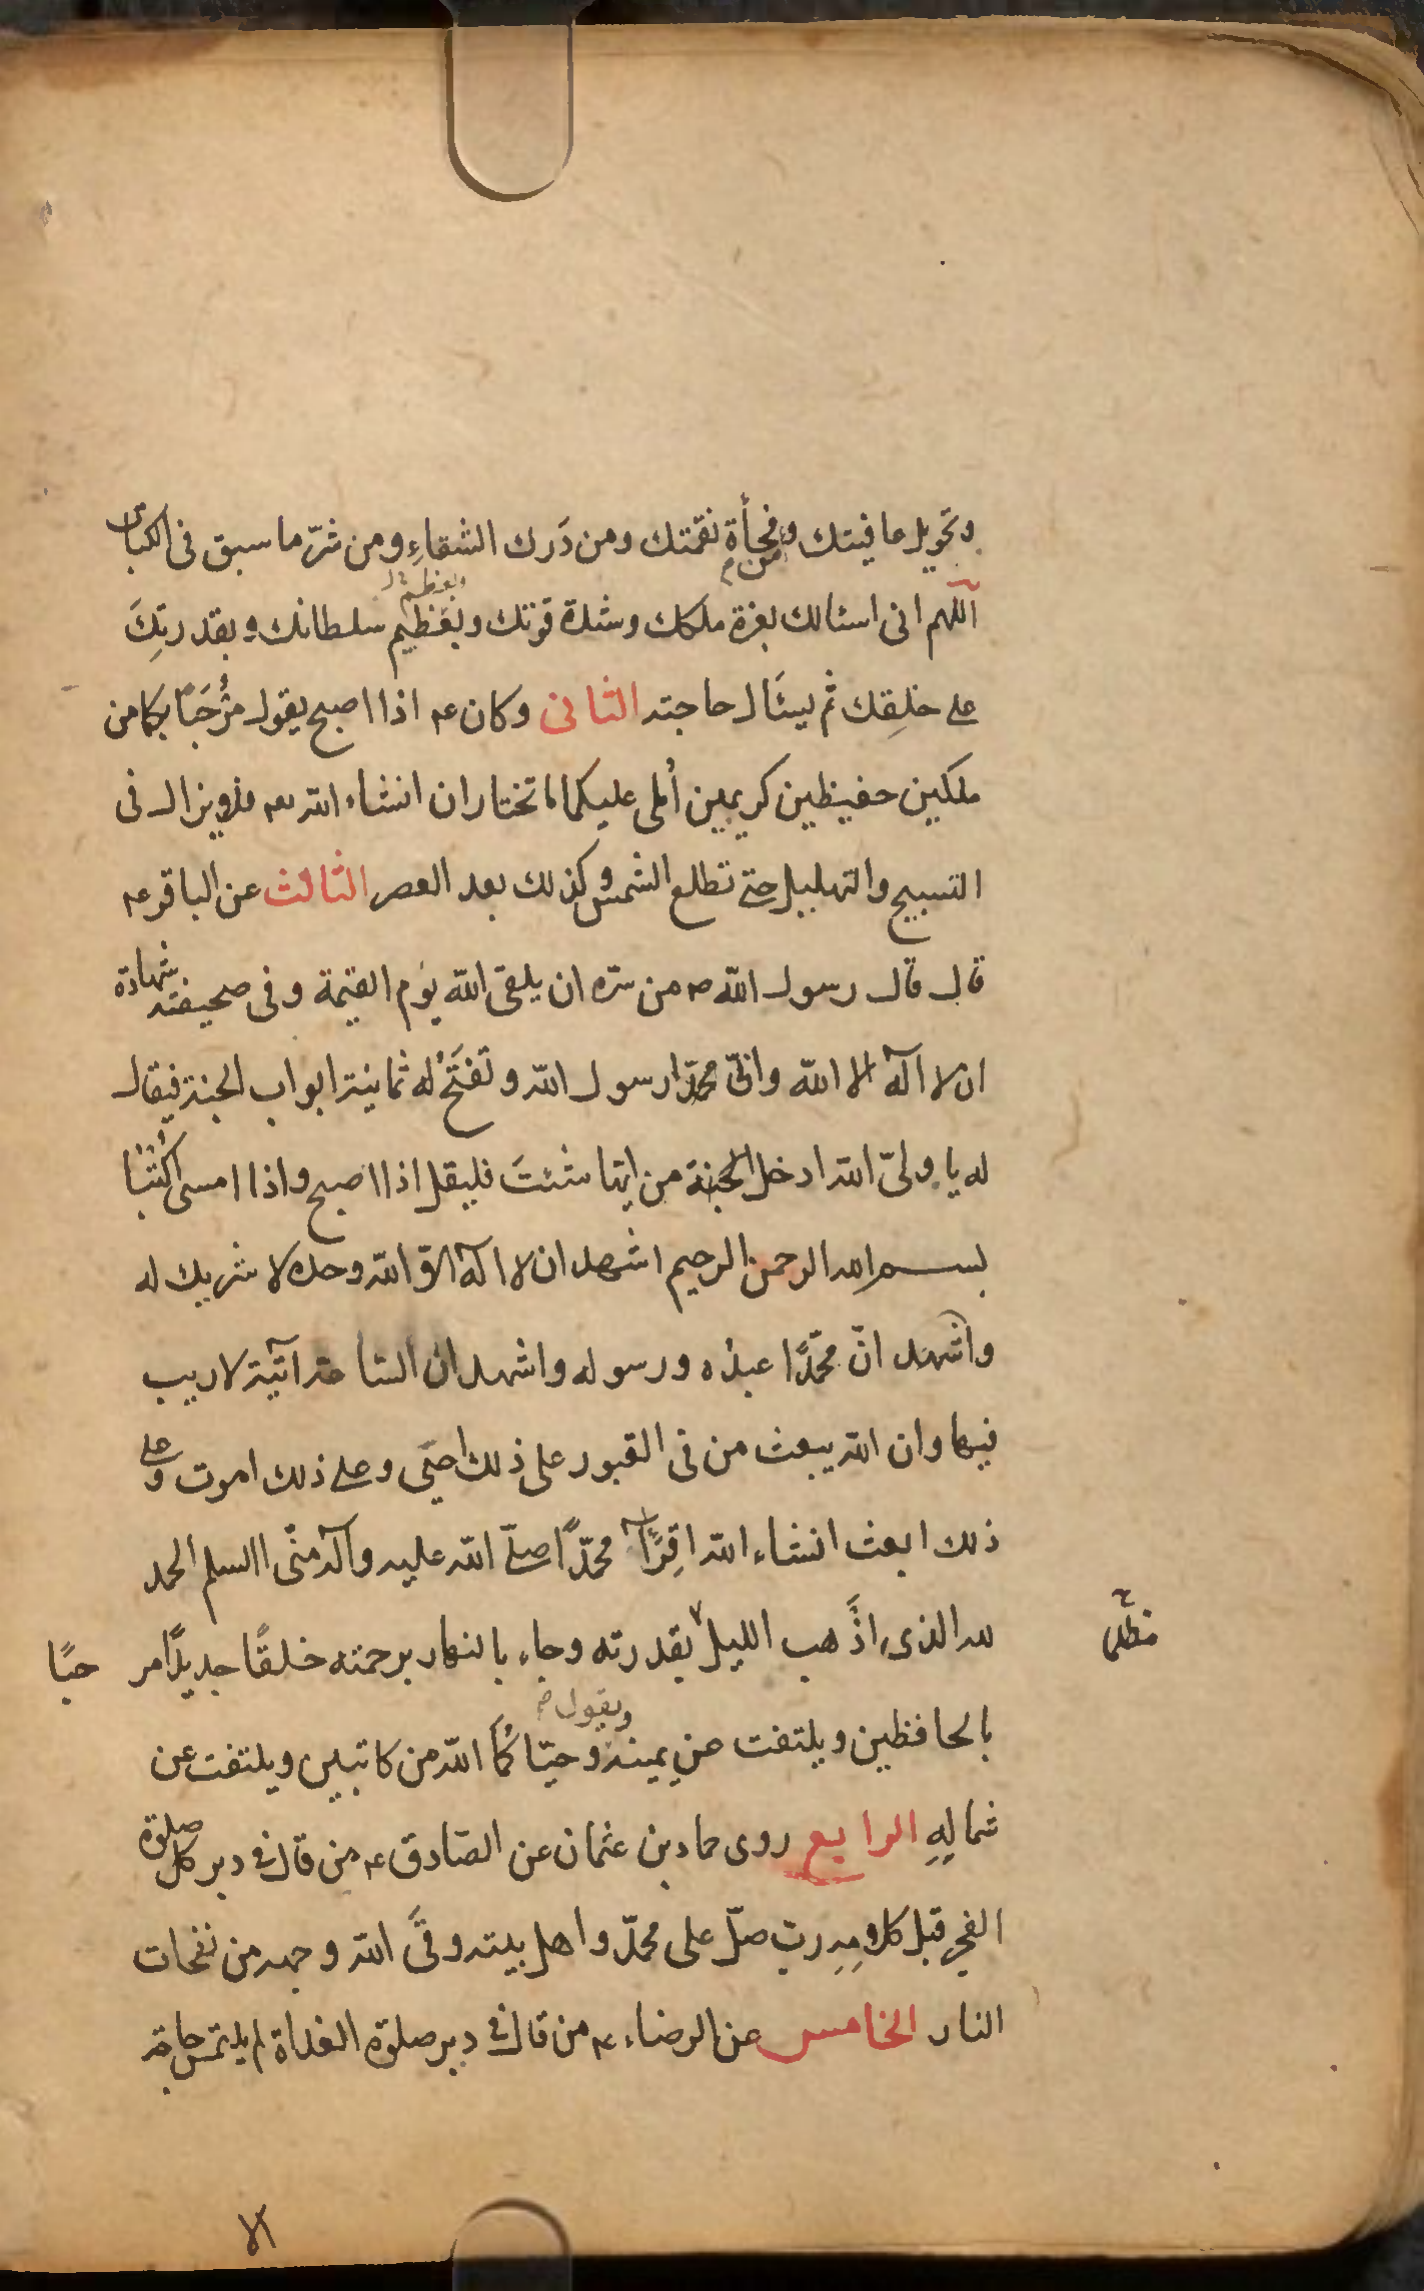 وتحويل عافيتك وفجأة نقمتك ومن دَرك الشقاءِ ومن شرّ ما سبق فى الكتاب
من م
وبعظيم
اللهم انى اسئالك بعزة ملكك وشدة قوتك وبعَظيم سلطانك وبقدرتِكَ
على خلقِك ثم يسئَال حاجته الثانى وكان ع اذا اصبح يقول مَرْحَبًا بكما من
ملكين حفيظين كريمين أُملى عليكما ما تختاران انشاء الله تع فلا يزال فى
التسبيح والتهليل حتى تطلع الشمس وكذلك بعد العصر الثالث عن الباقر ع
قال قال رسول الله ص من سرّه ان يلقى الله يوم القيمة وفى صحيفته شهادة
ان لا اله الا الله وانّى محمّدًا رسول الله وتفتَحُ له ثمانية ابواب الجنة فيقال
له يا ولىّ الله ادخل الجنة من ايّها شئتَ فليقل اذا اصبح واذا امسى اكْتُبَا
بسم الله الرحمن الرحيم اشهد ان لا اله الّا الله وحده لا شريك له
واشهد انّ محمّدًا عبدُه ورسوله واشهد ان السّاعة آتية لا ريب
فيها وان الله يبعث من فى القبور على ذلك احيَى وعلى ذلك اموت وعلى
ذلك ابعث انشاء الله اقرِئَا محمّدًا صلّى الله عليه وآله منّى السلم الحمد
لله الذى اذَهب الليل بقدرته وجاء بالنهار برحمته خلقًا جديدًا مر حبًا
بالحافظين ويلتفت عن يمينه وحيّاكُمَا الله من كاتبين ويلتفت عن
ويقول
شمالِهِ الرابع روى حماد بن عثمان عن الصّادق ع من قال فى دبر كل صلوة
الفجر قبل كلامِهِ ربّ صلّ على محمّد واهل بيته وقَى الله وجهه من نفحات
النار الخامس عن الرضاء ع من قال فى دبر صلوة الغداة لم يلتمس حاجة
الا